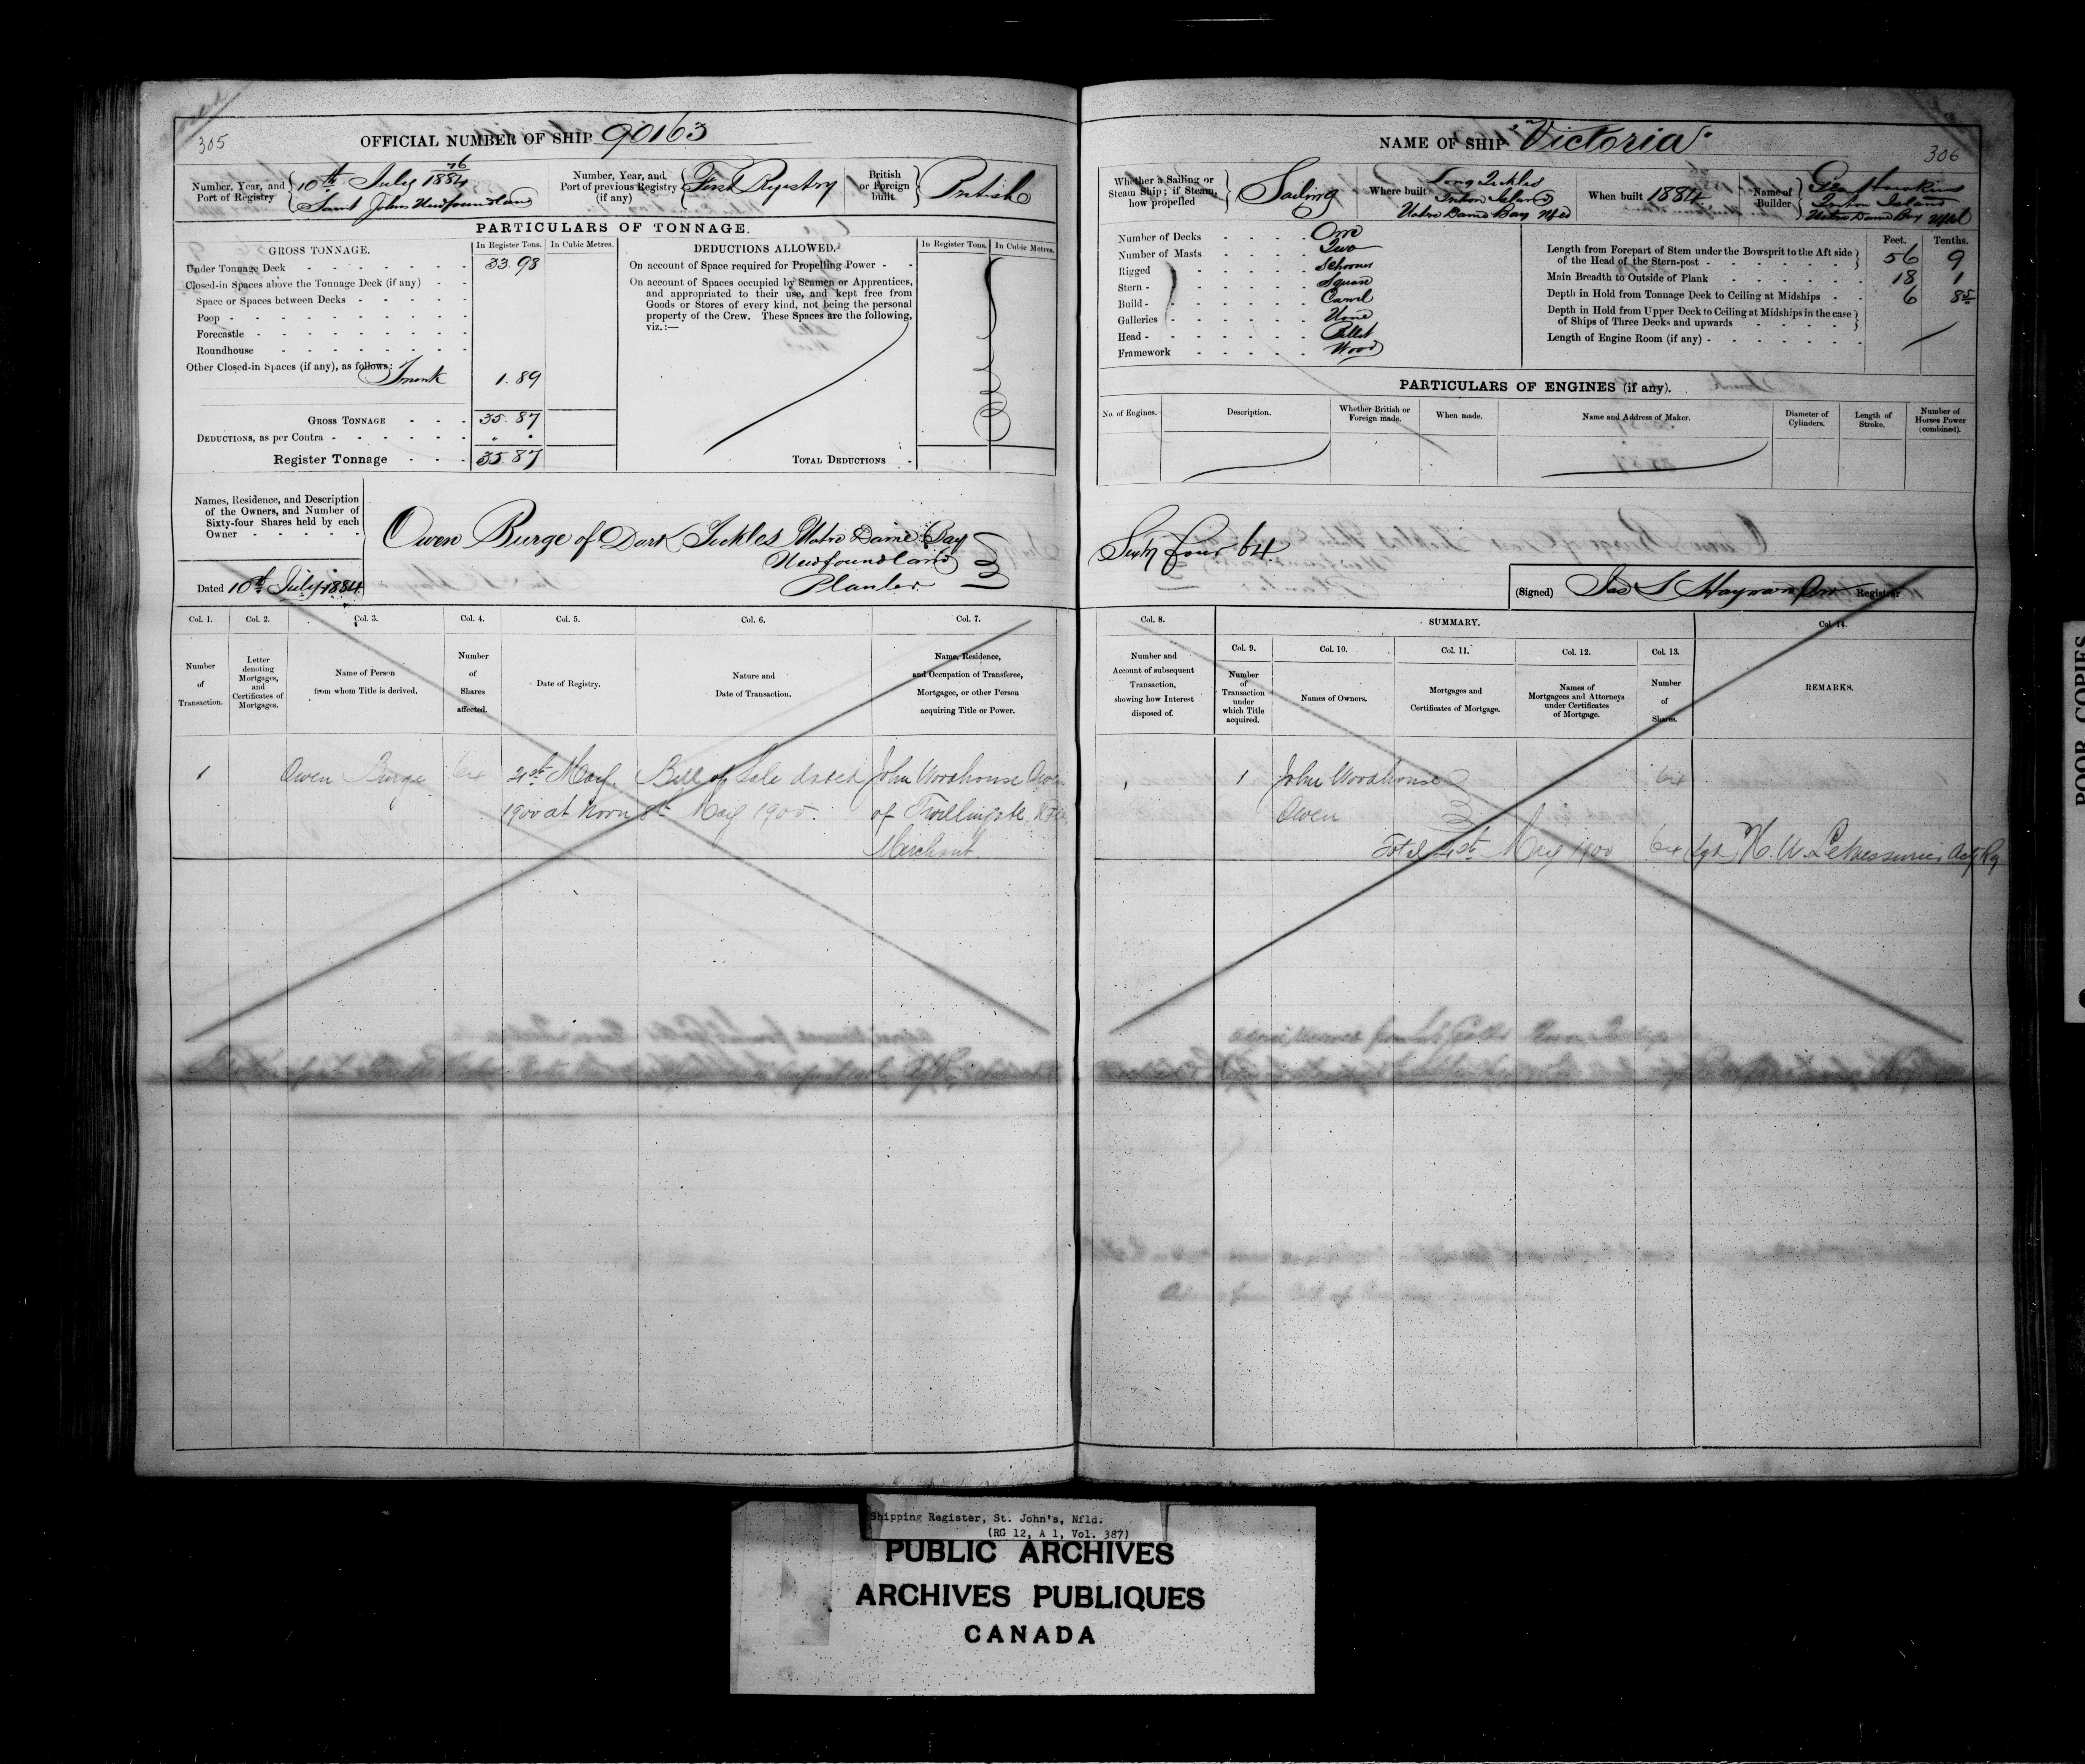 305
OFFICIAL NUMBER OF SHIP 90163
Number, Year, and Port of Registry
76
10th July 1884
Saint Johns Newfoundland
Number, Year, and Port of previous Registry (if any)
First Registry
British or Foreign built
British
PARTICULARS OF TONNAGE.
GROSS TONNAGE.
In Register Tons.
In Cubic Metres.
DEDUCTIONS ALLOWED.
In Register Tons.
In Cubic Metres.
Under Tonnage Deck 33.98
Closed-in Spaces above the Tonnage Deck (if any)
Space or Spaces between Decks
Poop
Forecastle
Roundhouse
Other Closed-in Spaces (if any), as follows:
Trunk 1.89
GROSS TONNAGE 35.87
DEDUCTIONS, as per Contra
Register Tonnage 35.87
On account of Space required for Propelling Power
On account of Spaces occupied by Seamen or Apprentices,
and appropriated to their use, and kept free from
Goods or Stores of every kind, not being the personal
property of the Crew. These Spaces are the following,
viz.:—
TOTAL DEDUCTIONS
Names, Residence, and Description
of the Owners, and Number of
Sixty-four Shares held by each
Owner
Owen Burge of Dark Tickles Notre Dame Bay
Newfoundland
Planter
Dated 10th July 1884
Col. 1.
Col. 2.
Col. 3.
Col. 4.
Col. 5.
Col. 6.
Col. 7.
Number of Transaction.
Letter denoting Mortgages, and Certificates of Mortgages.
Name of Person from whom Title is derived.
Number of Shares affected.
Date of Registry.
Nature and Date of Transaction.
Name, Residence, and Occupation of Transferee, Mortgagee, or other Person acquiring Title or Power.
1 Owen Burge 64 21st May Bill of Sale dated John Woodhouse Owen
1900 at Noon 8th May 1900. of Twillingate, Nfld
Merchant.
NAME OF SHIP "Victoria"
306
Whether a Sailing or Steam Ship; if Steam, how propelled
Sailing
Where built
Long Tickles
Triton Island
Notre Dame Bay Nfld
When built 1884
Name of Builder
Geo Hawkins
Triton Island
Notre Dame Bay Nfld
Number of Decks One
Number of Masts Two
Rigged Schooner
Stern Square
Build Carvel
Galleries None
Head Billet
Framework Wood
Feet. Tenths.
Length from Forepart of Stem under the Bowsprit to the Aft side
of the Head of the Stern-post 56 9
Main Breadth to Outside of Plank 18 1
Depth in Hold from Tonnage Deck to Ceiling at Midships 6 85
Depth in Hold from Upper Deck to Ceiling at Midships in the case
of Ships of Three Decks and upwards
Length of Engine Room (if any)
PARTICULARS OF ENGINES (if any).
No. of Engines.
Description.
Whether British or Foreign made.
When made.
Name and Address of Maker.
Diameter of Cylinders.
Length of Stroke.
Number of Horses Power (combined).
Sixty four 64
(Signed) Jas S Hayward Registrar
Col. 8.
SUMMARY.
Col. 14.
Col. 9.
Col. 10.
Col. 11.
Col. 12.
Col. 13.
Number and Account of subsequent Transaction, showing how Interest disposed of.
Number of Transaction under which Title acquired.
Names of Owners.
Mortgages and Certificates of Mortgage.
Names of Mortgagees and Attorneys under Certificates of Mortgage.
Number of Shares.
REMARKS.
1 John Woodhouse 64
Owen
Total 21st May 1900 64 (sgd) H. W. LeMessurier Actg Rg
POOR COPIES
Shipping Register, St. John's, Nfld.
(RG 12, A 1, Vol. 387)
PUBLIC ARCHIVES
ARCHIVES PUBLIQUES
CANADA